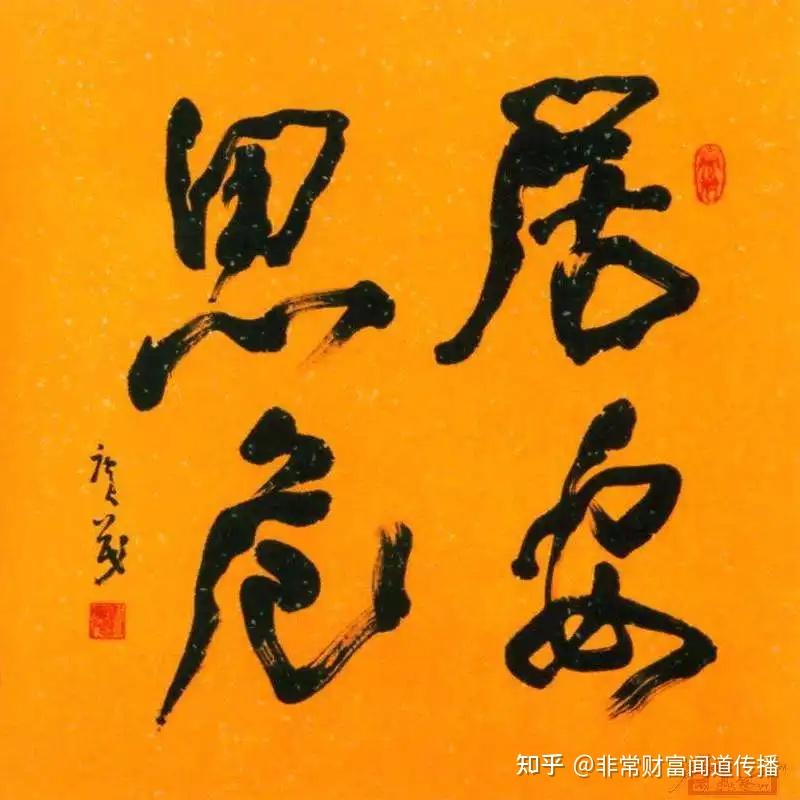 居安
思危
知乎 @非常财富闻道传播